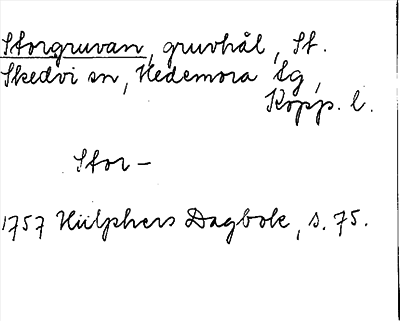 Storgruvan, gruvhål, St.
Skedvi sn, Hedemora tg,
Kopp. l.
Stor-
1757 Hülphers Dagbok, s. 75.